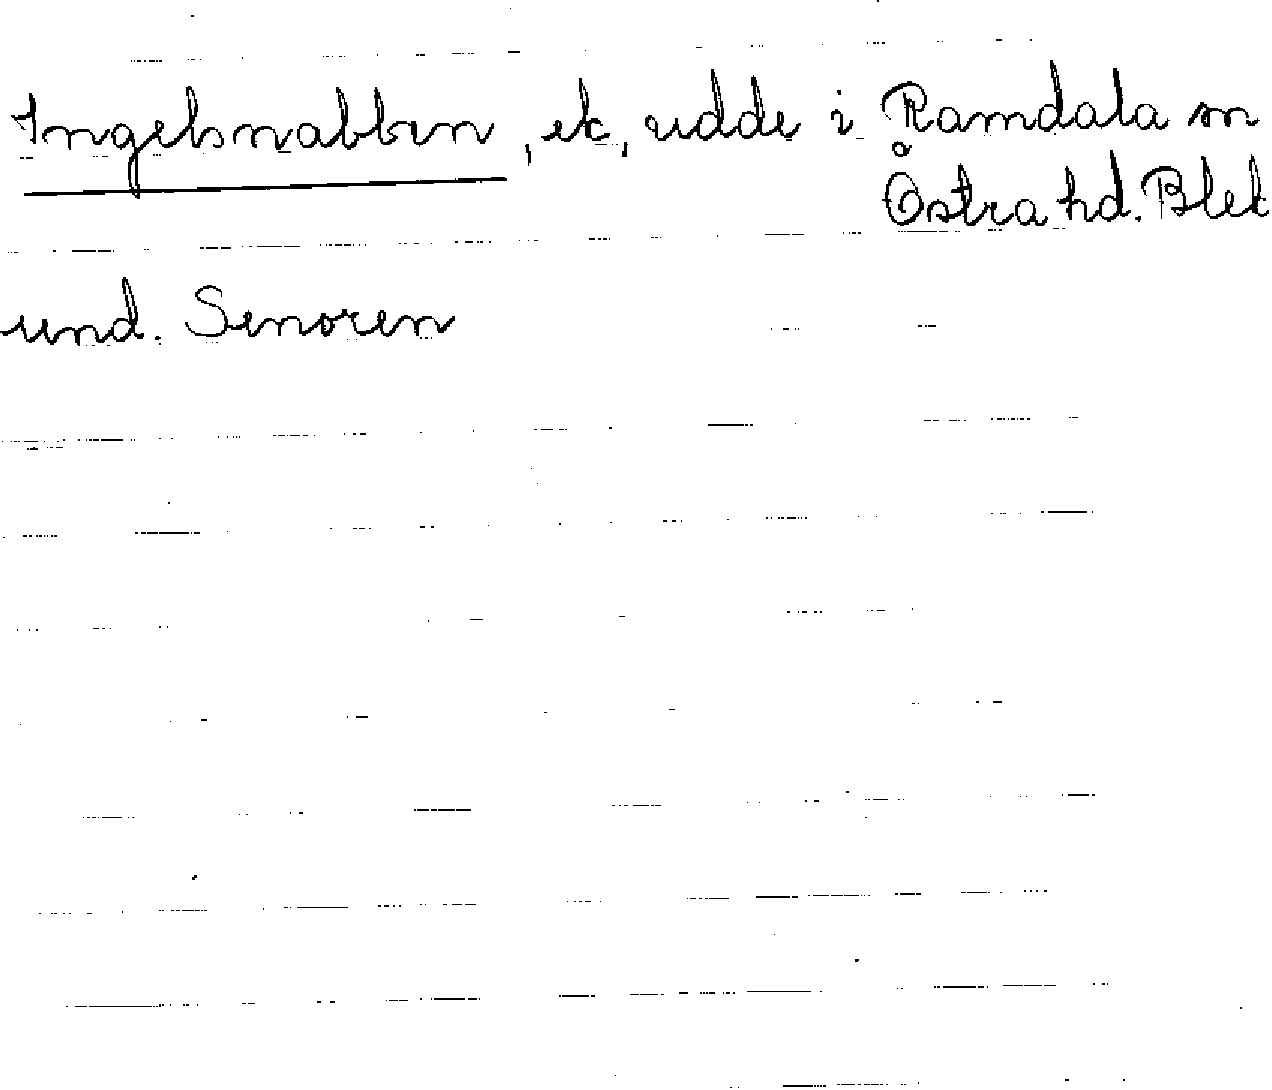 Ingelsnabben, ek, udde i Ramdala sn
Östra hd. Blek
und. Senoren